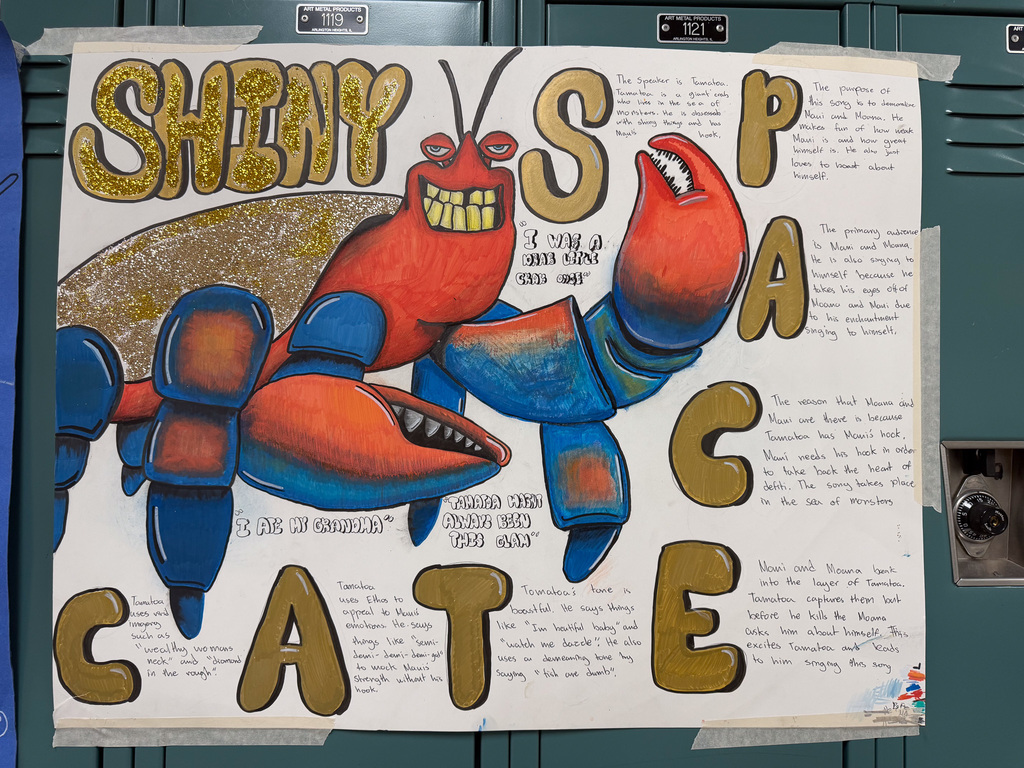 ART METAL PRODUCTS
1119
ARLINGTON HEIGHTS, IL
ART METAL PRODUCTS
1121
ARLINGTON HEIGHTS, IL
SHINY
S
The Speaker is Tamatoa.
Tamatoa is a giant crab
who lives in the sea of
monsters. He is obsessed
with shiny things and has
Maui's hook.
P
The purpose of
this song is to demoralize
Maui and Moana. He
makes fun of how weak
Maui is and how great
himself is. He also just
loves to boast about
himself.
"I WAS A
DRAB LITTLE
CRAB ONCE"
A
The primary audience
is Maui and Moana.
He is also singing to
himself because he
takes his eyes off of
Moana and Maui due
to his enchantment
singing to himself.
C
The reason that Moana and
Maui are there is because
Tamatoa has Maui's hook.
Maui needs his hook in order
to take back the heart of
defiti. The song takes place
in the sea of monsters
"I ATE MY GRANDMA"
"TAMATOA HASNT
ALWAYS BEEN
THIS GLAM"
E
Maui and Moana break
into the layer of Tamatoa.
Tamatoa captures them but
before he kills the Moana
asks him about himself. This
excites Tamatoa and leads
to him singing this song
C
Tamatoa
uses vivid
imagery
such as
"wealthy womans
neck" and "diamond
in the rough".
A
Tamatoa
uses Ethos to
appeal to Mauis
emotions. He says
things like "semi-
demi-demi-demi-god"
to mock Mauis'
strength without his
hook.
T
Tamatoa's tone is
boastful. He says things
like "I'm beatiful baby" and
"watch me dazzle". He also
uses a demeaning tone by
saying "fish are dumb".